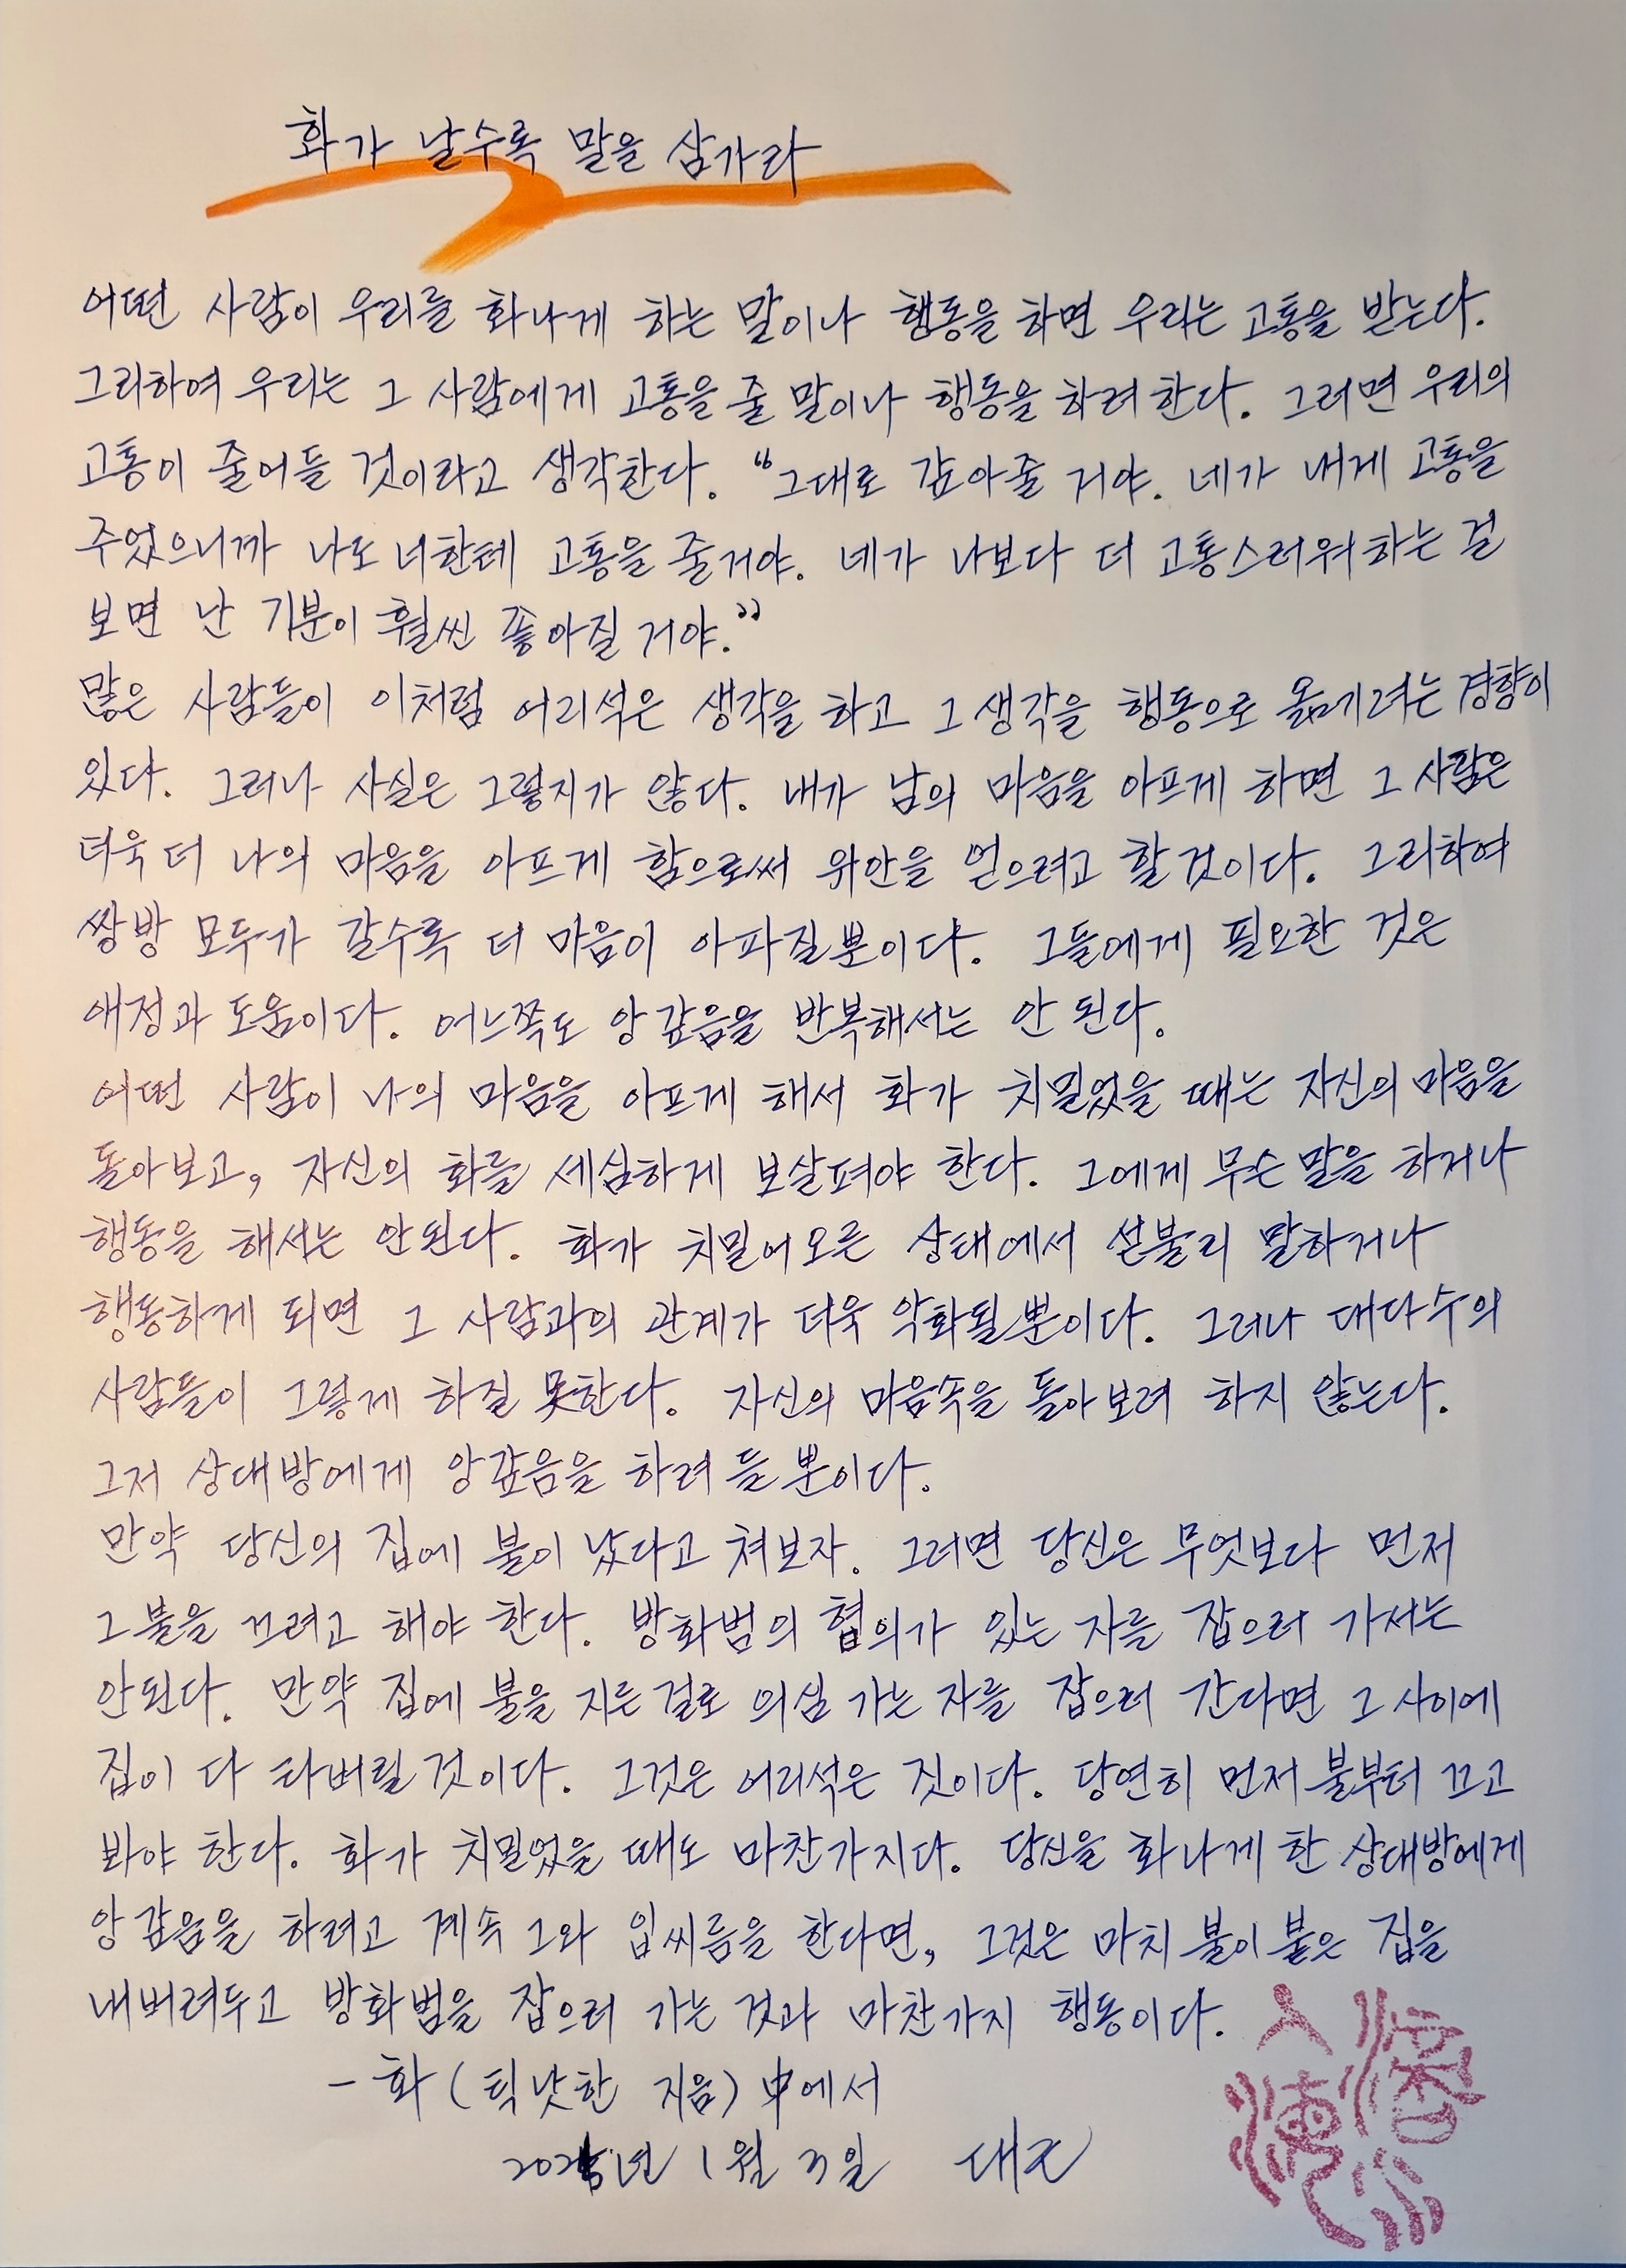 화가 날수록 말을 삼가라
어떤 사람이 우리를 화나게 하는 말이나 행동을 하면 우리는 고통을 받는다.
그리하여 우리는 그 사람에게 고통을 줄 말이나 행동을 하려한다. 그러면 우리의
고통이 줄어들 것이라고 생각한다. "그대로 갚아줄 거야. 네가 내게 고통을
주었으니까 나도 너한테 고통을 줄거야. 네가 나보다 더 고통스러워하는 걸
보면 난 기분이 훨씬 좋아질 거야."
많은 사람들이 이처럼 어리석은 생각을 하고 그 생각을 행동으로 옮기려는 경향이
있다. 그러나 사실은 그렇지가 않다. 내가 남의 마음을 아프게 하면 그 사람은
더욱 더 나의 마음을 아프게 함으로써 위안을 얻으려고 할것이다. 그리하여
쌍방 모두가 갈수록 더 마음이 아파질뿐이다. 그들에게 필요한 것은
애정과 도움이다. 어느쪽도 앙갚음을 반복해서는 안 된다.
어떤 사람이 나의 마음을 아프게 해서 화가 치밀었을 때는 자신의 마음을
돌아보고, 자신의 화를 세심하게 보살펴야 한다. 그에게 무슨 말을 하거나
행동을 해서는 안된다. 화가 치밀어오른 상태에서 섣불리 말하거나
행동하게 되면 그 사람과의 관계가 더욱 악화될뿐이다. 그러나 대다수의
사람들이 그렇게 하질 못한다. 자신의 마음속을 돌아보려 하지 않는다.
그저 상대방에게 앙갚음을 하려 들뿐이다.
만약 당신의 집에 불이 났다고 쳐보자. 그러면 당신은 무엇보다 먼저
그 불을 끄려고 해야 한다. 방화범의 협의가 있는 자를 잡으러 가서는
안된다. 만약 집에 불을 지른걸로 의심 가는 자를 잡으러 간다면 그 사이에
집이 다 타버릴것이다. 그것은 어리석은 짓이다. 당연히 먼저 불부터 끄고
봐야 한다. 화가 치밀었을 때도 마찬가지다. 당신을 화나게 한 상대방에게
앙갚음을 하려고 계속 그와 입씨름을 한다면, 그것은 마치 불이 붙은 집을
내버려두고 방화범을 잡으러 가는 것과 마찬가지 행동이다.
- 화 (틱낫한 지음) 中에서
2025년 1월 3일